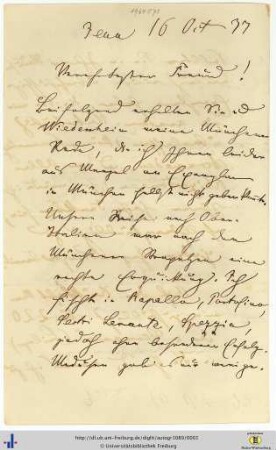 Jena 16 Oct 77
Verehrtester Freund!
Beifolgend erhalten Sie
meine Münchener
Rede, die ich Ihnen leider
aus Mangel an Exemplaren
in München selbst nicht geben konnte.
Unsere Reise nach Ober-
Italien war nach den
Münchener Strapazen eine
rechte Erquickung. Ich
fischte in Rapallo, Portofino,
Sestri Levante, Spezzia,
jedoch ohne besonderen Erfolg.
Medusen gab es nur wenige.
http://dl.ub.uni-freiburg.de/diglit/autogr1080/0002
© Universitätsbibliothek Freiburg